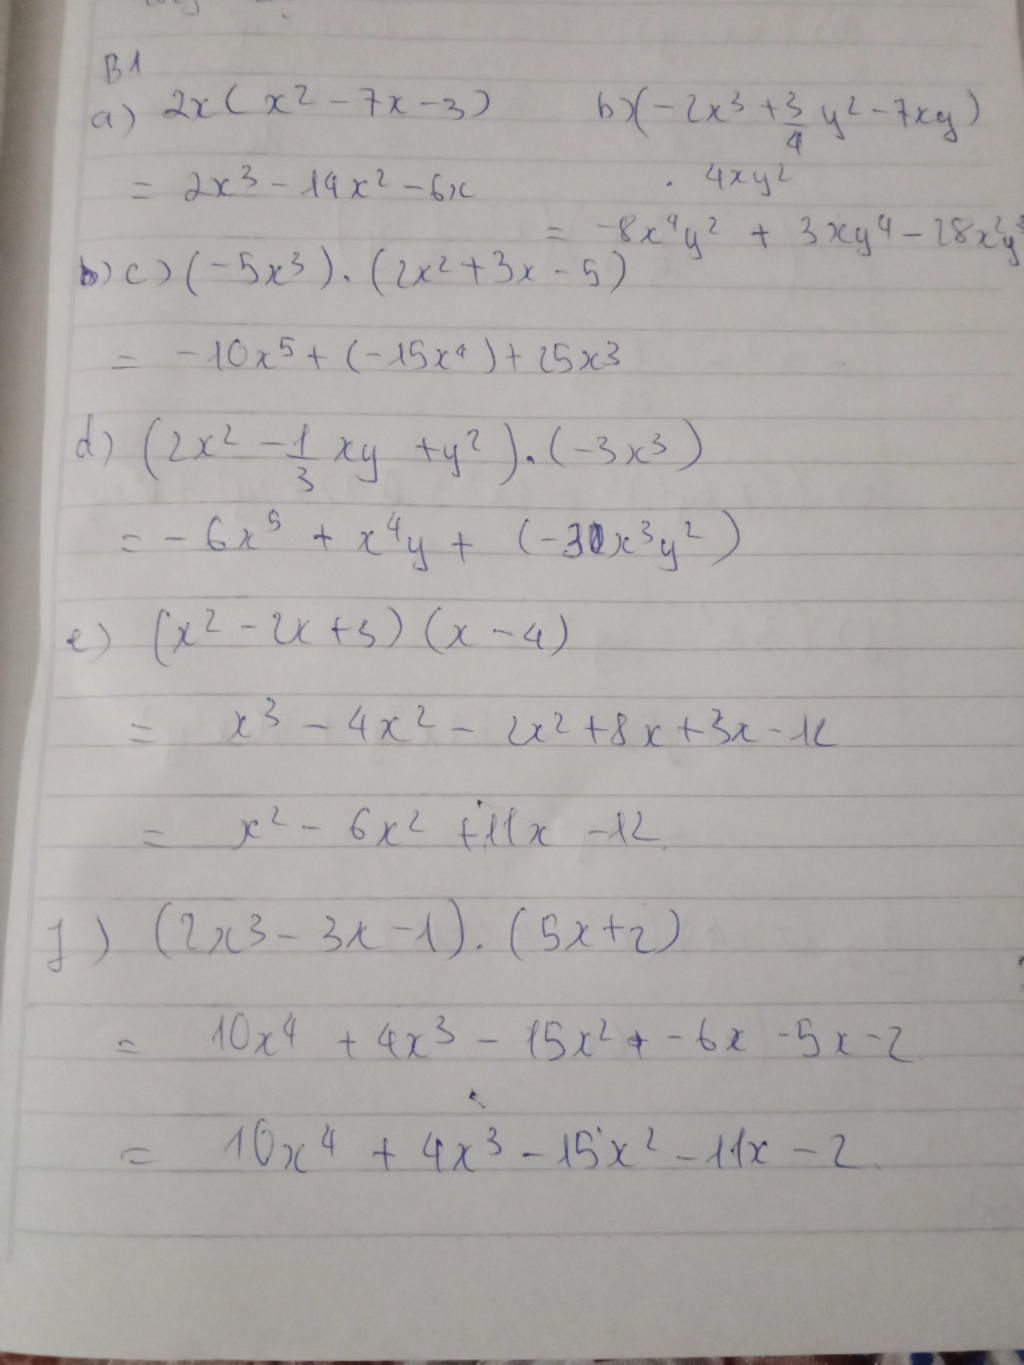 B1
a) 2x(x² - 7x - 3)
= 2x³ - 14x² - 6x
b) (-2x³ + 3/4 y² - 7xy)
. 4xy²
= -8x⁴y² + 3xy⁴ - 28x²y³
c) (-5x³).(2x² + 3x - 5)
= -10x⁵ + (-15x⁴) + 25x³
d) (2x² - 1/3 xy + y²).(-3x³)
= -6x⁵ + x⁴y + (-3x³y²)
e) (x² - 2x + 3) (x - 4)
= x³ - 4x² - 2x² + 8x + 3x - 12
= x² - 6x² + 11x - 12
f) (2x³ - 3x - 1).(5x + 2)
= 10x⁴ + 4x³ - 15x² + -6x - 5x - 2
= 10x⁴ + 4x³ - 15x² - 11x - 2